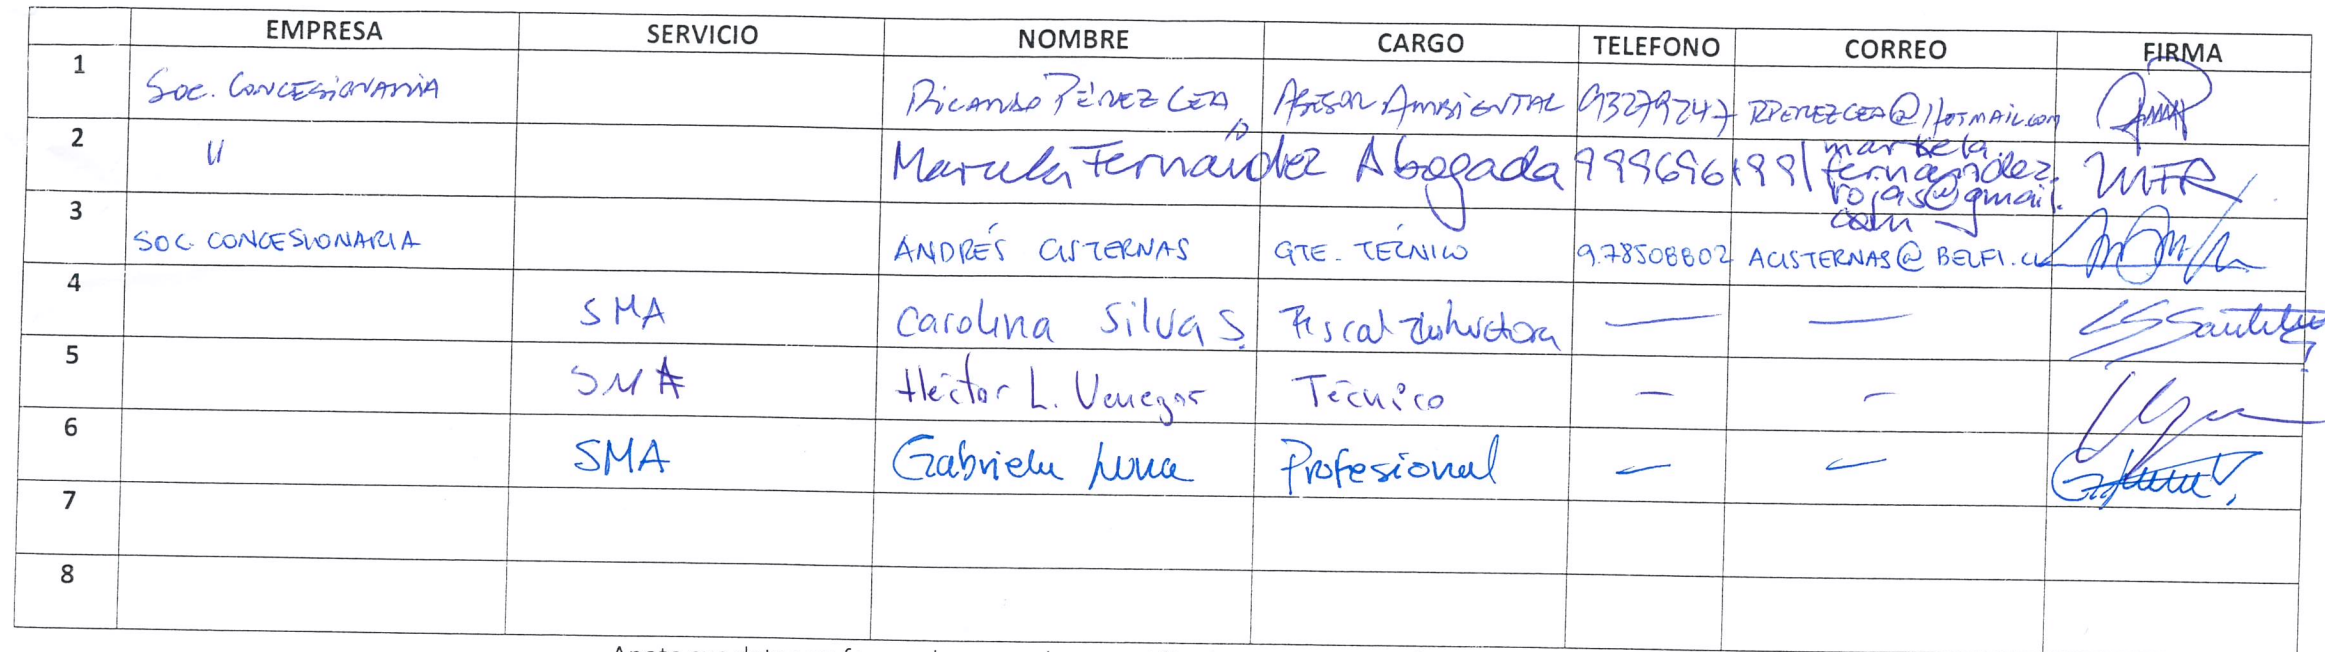 EMPRESA SERVICIO NOMBRE CARGO TELEFONO CORREO FIRMA
1 Soc. Concesionaria Ricardo Pérez Cea Asesor Ambiental 93279247 RPEREZCEA@Hotmail.com
2 " Marcela Fernández Abogada 999696199 marcela.
fernandez.
rojas@gmail.
com
MFR
3 SOC. CONCESIONARIA ANDRÉS CISTERNAS GTE. TÉCNICO 9.78508802 ACISTERNAS@BELFI.CL
4 SMA Carolina Silva S. Fiscal Instructora — —
5 SMA Héctor L. Venegas Técnico — —
6 SMA Gabriela Luna Profesional — —
7
8